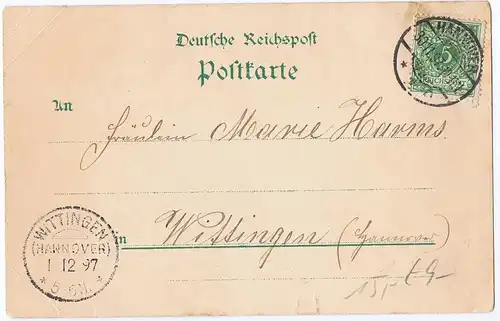 Deutsche Reichspost
Postkarte
HANNOVER
5
An
Fräulein Marie Harms
WITTINGEN
(HANNOVER)
1 12 97
* 5-6N. *
in Wittingen (Hannover)
15,-